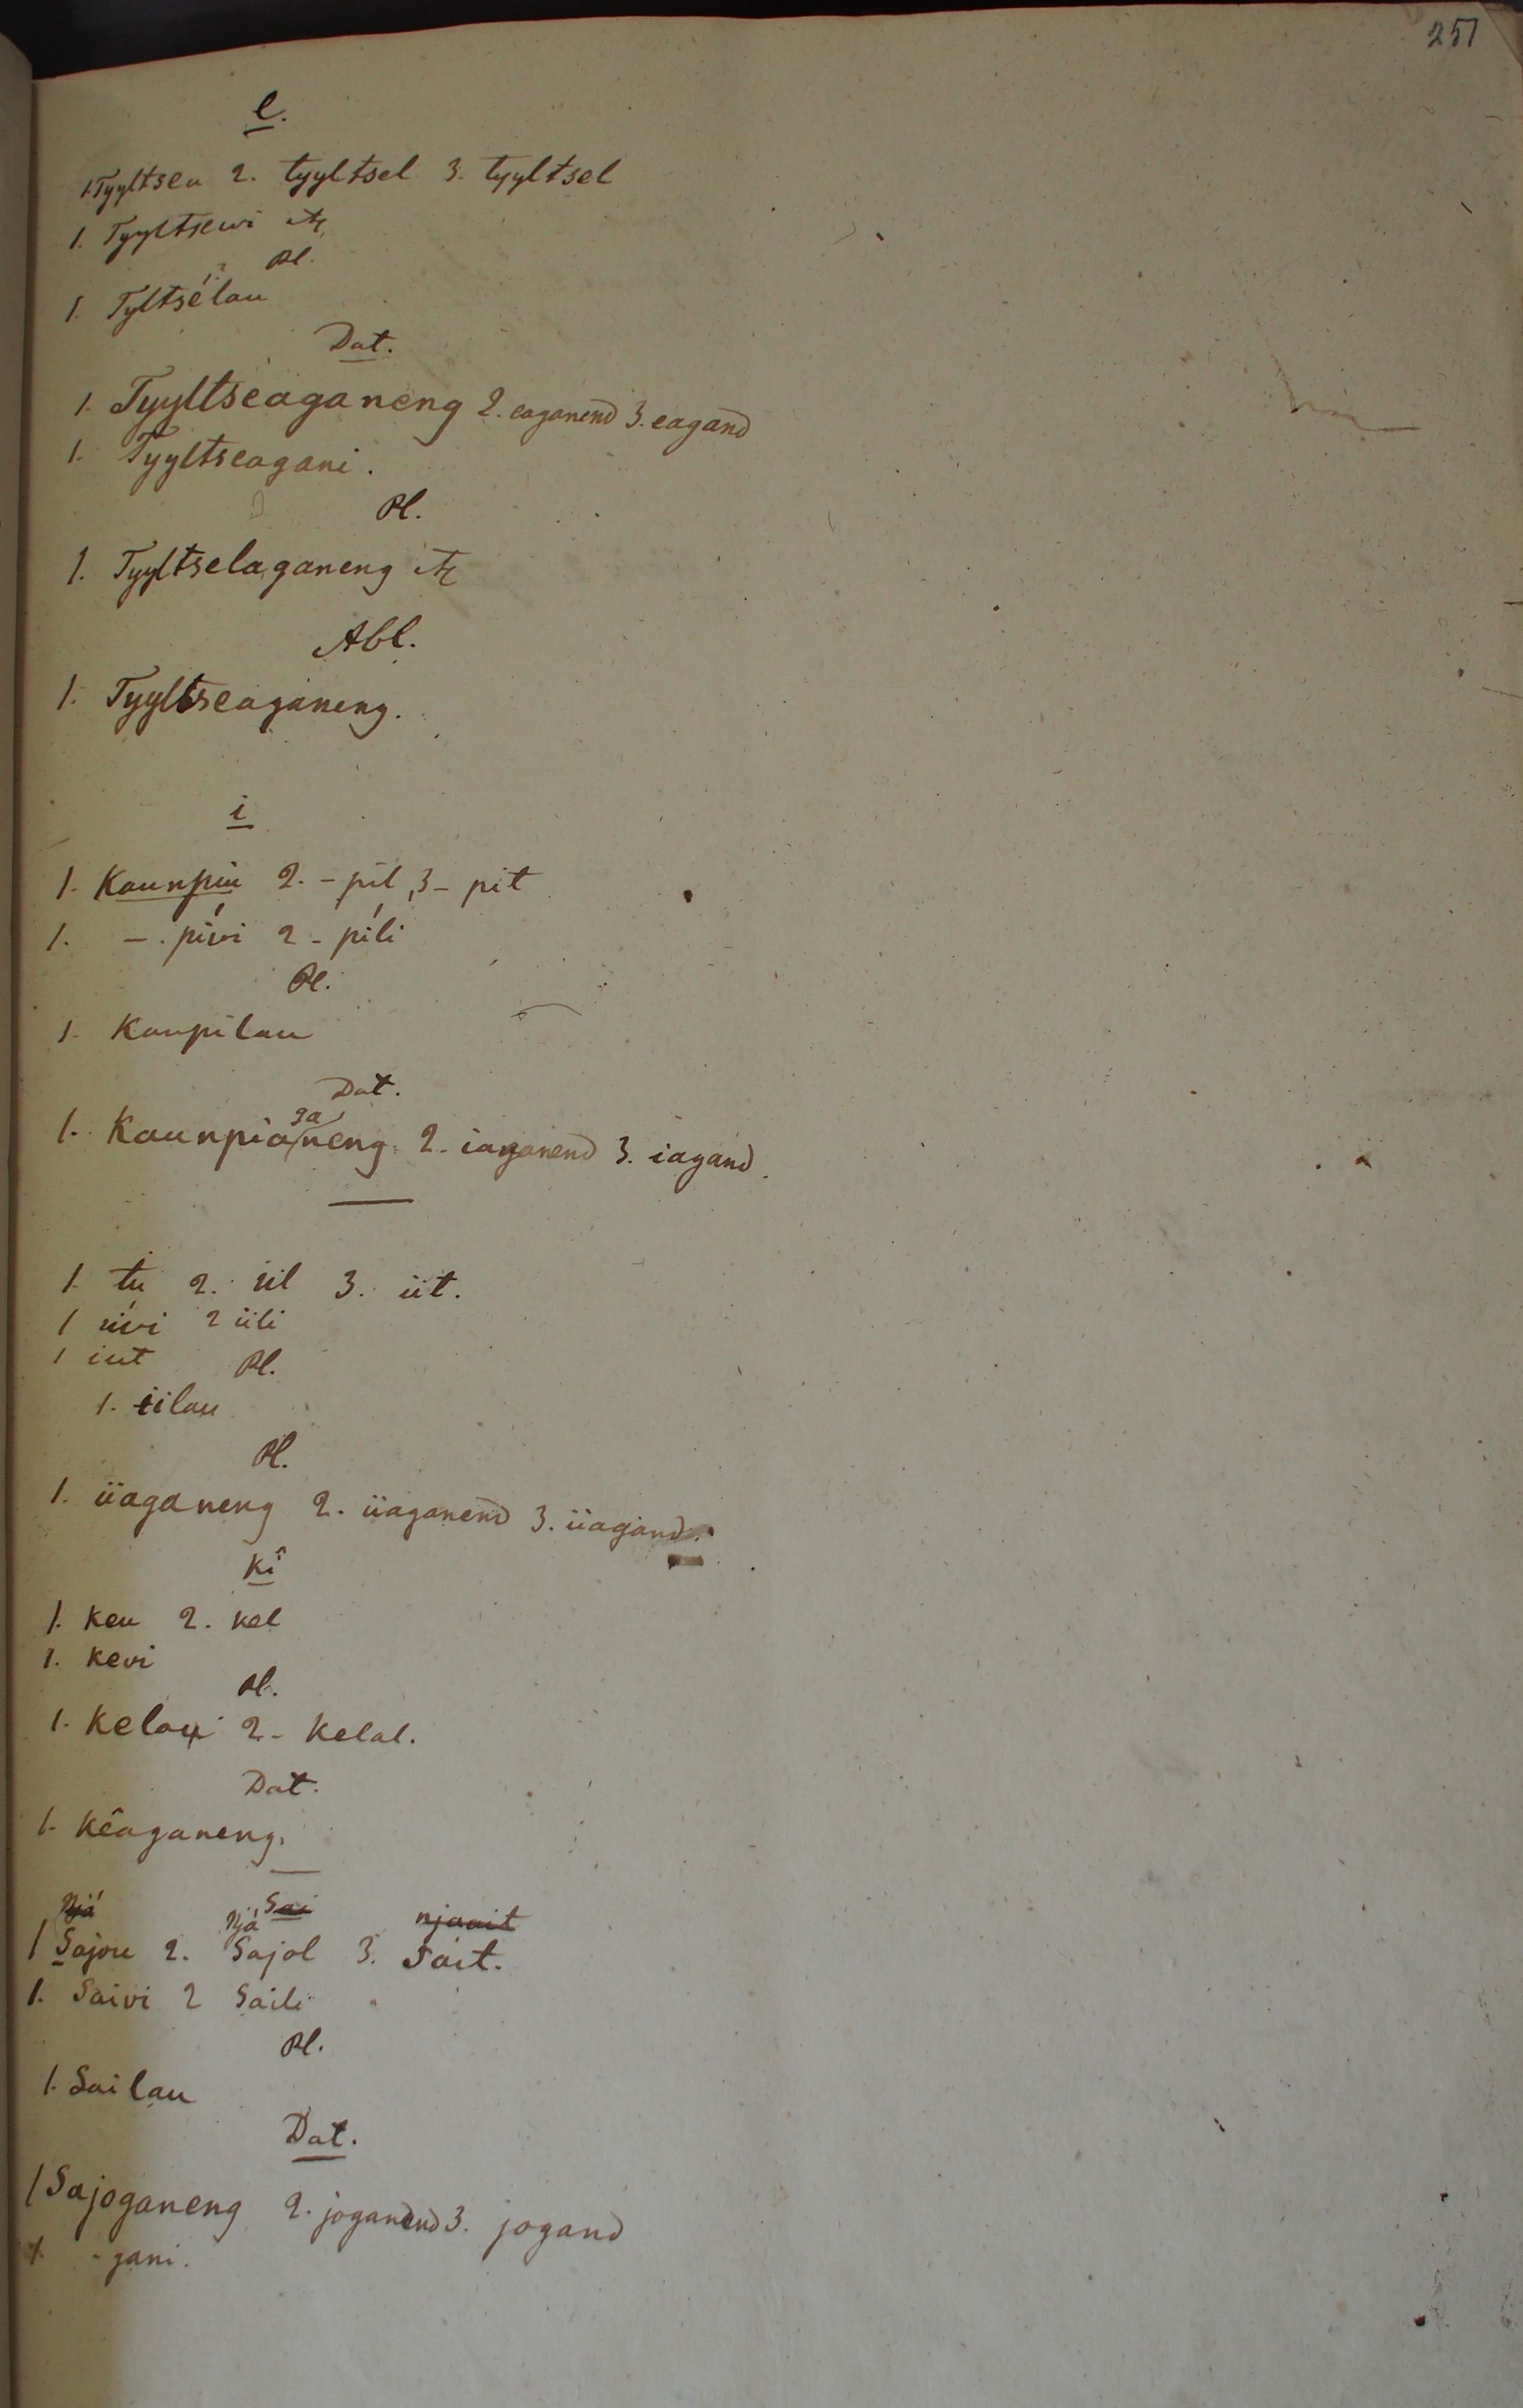 251
e.
1. Tyyltseu 2. tyyltsel 3. tyyltsel
1. Tyyltsewi etc
Pl.
1. Tyltsélau
Dat.
1. Tyyltseaganeng 2. eaganend 3. eagand
1. Tyyltseagani.
Pl.
1. Tyyltselaganeng etc
Abl.
1. Tyyltseaganeng.
i
1. Kaunpiu 2. - pil, 3 - pit
1. - . pívi 2 - píli
Pl.
1. Kaupilau
Dat.
ga
1. Kaunpianeng 2. iaganend 3. iagand.
1. iu 2. iil 3. iit.
1 iivi 2 iili
1 iut Pl.
1. iilau
Pl.
1. iiaganeng 2. iiaganend 3. iiagand.
Kî
1. keu 2. kel
1. kevi
Pl.
1. Kelau 2 - Kelal.
Dat.
1. Kêaganeng.
Njá Njá Sai njaait
1 Sajou 2. Sajol 3. Sait.
1. Saivi 2 Saili
Pl.
1. Sailau
Dat.
1 Sajoganeng 2. joganend 3. jogand
1. - gani.